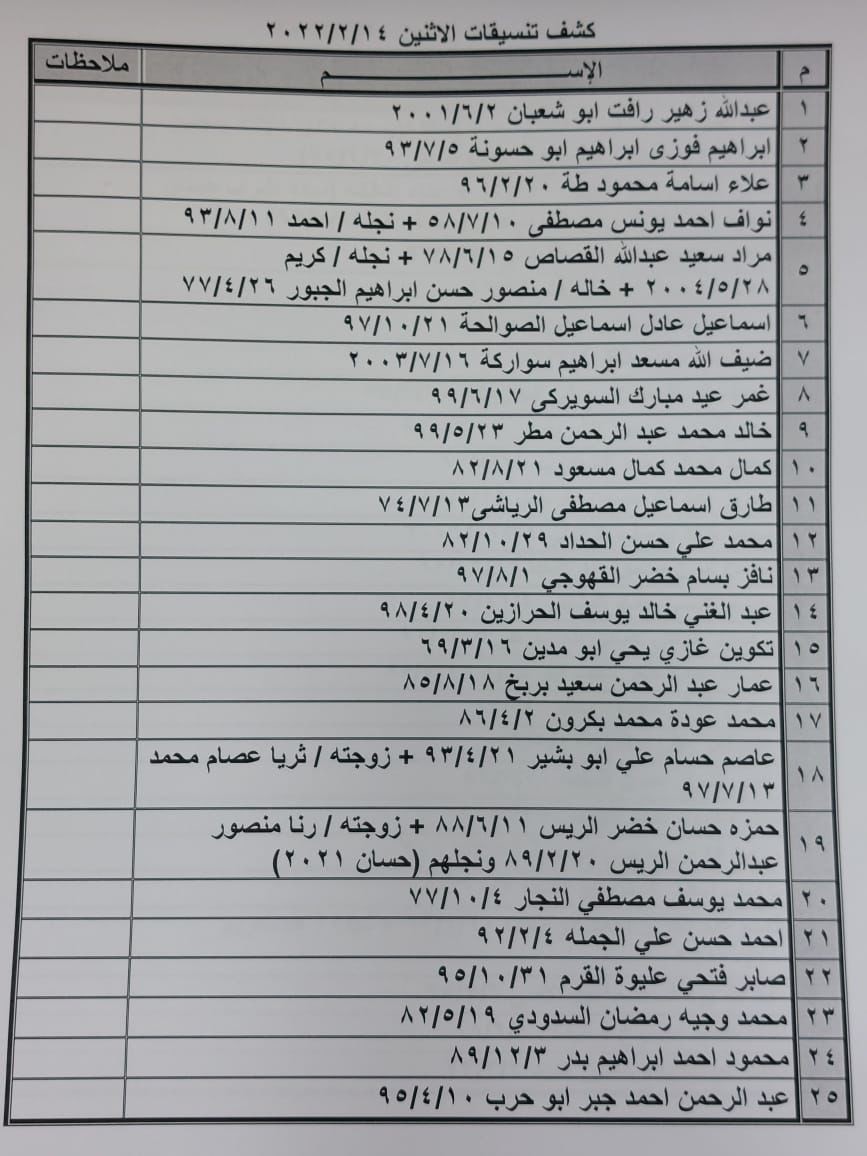 كشف تنسيقات الاثنين ٢٠٢٢/٢/١٤
م الإســــــــــــم ملاحظات
١ عبدالله زهير رافت ابو شعبان ٢٠٠١/٦/٢
٢ ابراهيم فوزى ابراهيم ابو حسونة ٩٣/٧/٥
٣ علاء اسامة محمود طة ٩٦/٢/٢٠
٤ نواف احمد يونس مصطفى ٥٨/٧/١٠ + نجله / احمد ٩٣/٨/١١
٥ مراد سعيد عبدالله القصاص ٧٨/٦/١٥ + نجله / كريم
٢٠٠٤/٥/٢٨ + خاله / منصور حسن ابراهيم الجبور ٧٧/٤/٢٦
٦ اسماعيل عادل اسماعيل الصوالحة ٩٧/١٠/٢١
٧ ضيف الله مسعد ابراهيم سواركة ٢٠٠٣/٧/١٦
٨ غمر عيد مبارك السويركى ٩٩/٦/١٧
٩ خالد محمد عبد الرحمن مطر ٩٩/٥/٢٣
١٠ كمال محمد كمال مسعود ٨٢/٨/٢١
١١ طارق اسماعيل مصطفى الرياشى٧٤/٧/١٣
١٢ محمد علي حسن الحداد ٨٢/١٠/٢٩
١٣ نافز بسام خضر القهوجي ٩٧/٨/١
١٤ عبد الغني خالد يوسف الحرازين ٩٨/٤/٢٠
١٥ تكوين غازي يحي ابو مدين ٦٩/٣/١٦
١٦ عمار عبد الرحمن سعيد بربخ ٨٥/٨/١٨
١٧ محمد عودة محمد بكرون ٨٦/٤/٢
١٨ عاصم حسام علي ابو بشير ٩٣/٤/٢١ + زوجته / ثريا عصام محمد
٩٧/٧/١٣
١٩ حمزه حسان خضر الريس ٨٨/٦/١١ + زوجته / رنا منصور
عبدالرحمن الريس ٨٩/٢/٢٠ ونجلهم (حسان ٢٠٢١)
٢٠ محمد يوسف مصطفي النجار ٧٧/١٠/٤
٢١ احمد حسن علي الجمله ٩٢/٢/٤
٢٢ صابر فتحي عليوة القرم ٩٥/١٠/٣١
٢٣ محمد وجيه رمضان السدودي ٨٢/٥/١٩
٢٤ محمود احمد ابراهيم بدر ٨٩/١٢/٣
٢٥ عبد الرحمن احمد جبر ابو حرب ٩٥/٤/١٠